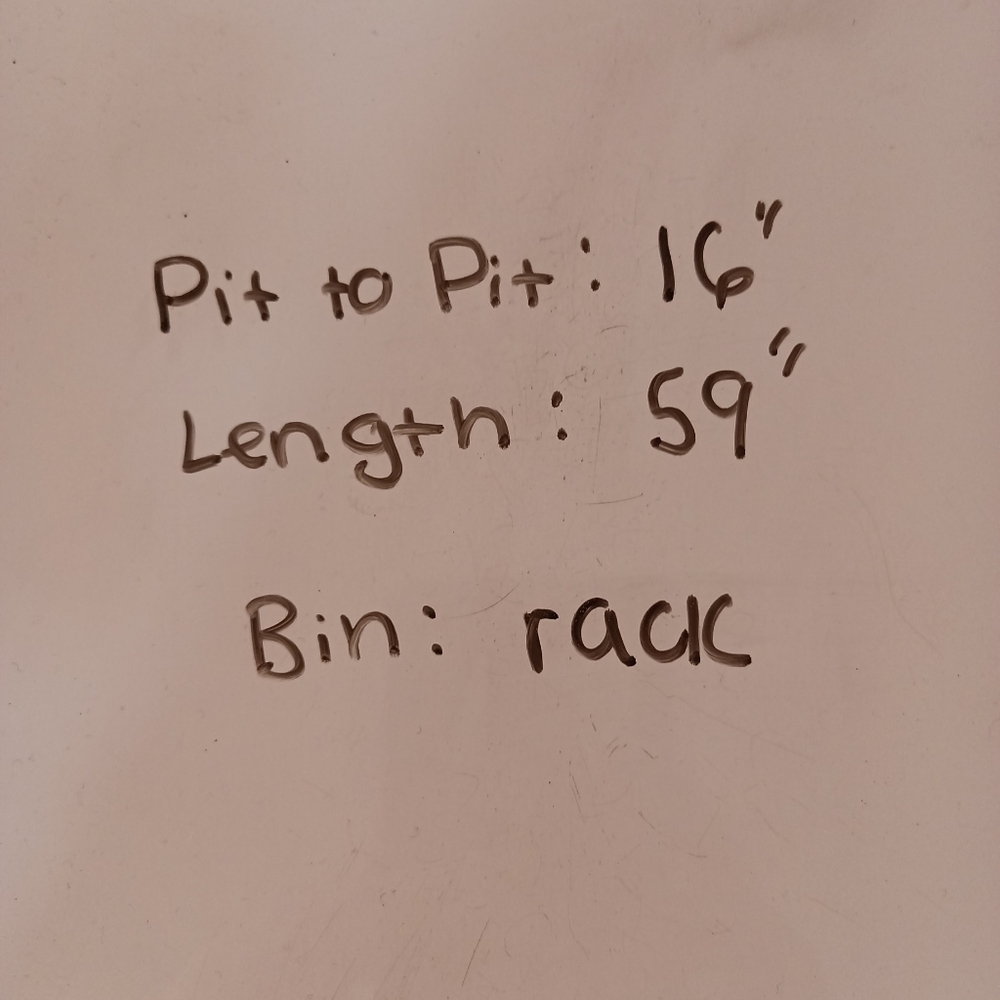 Pit to Pit: 16"
Length: 59"
Bin: rack